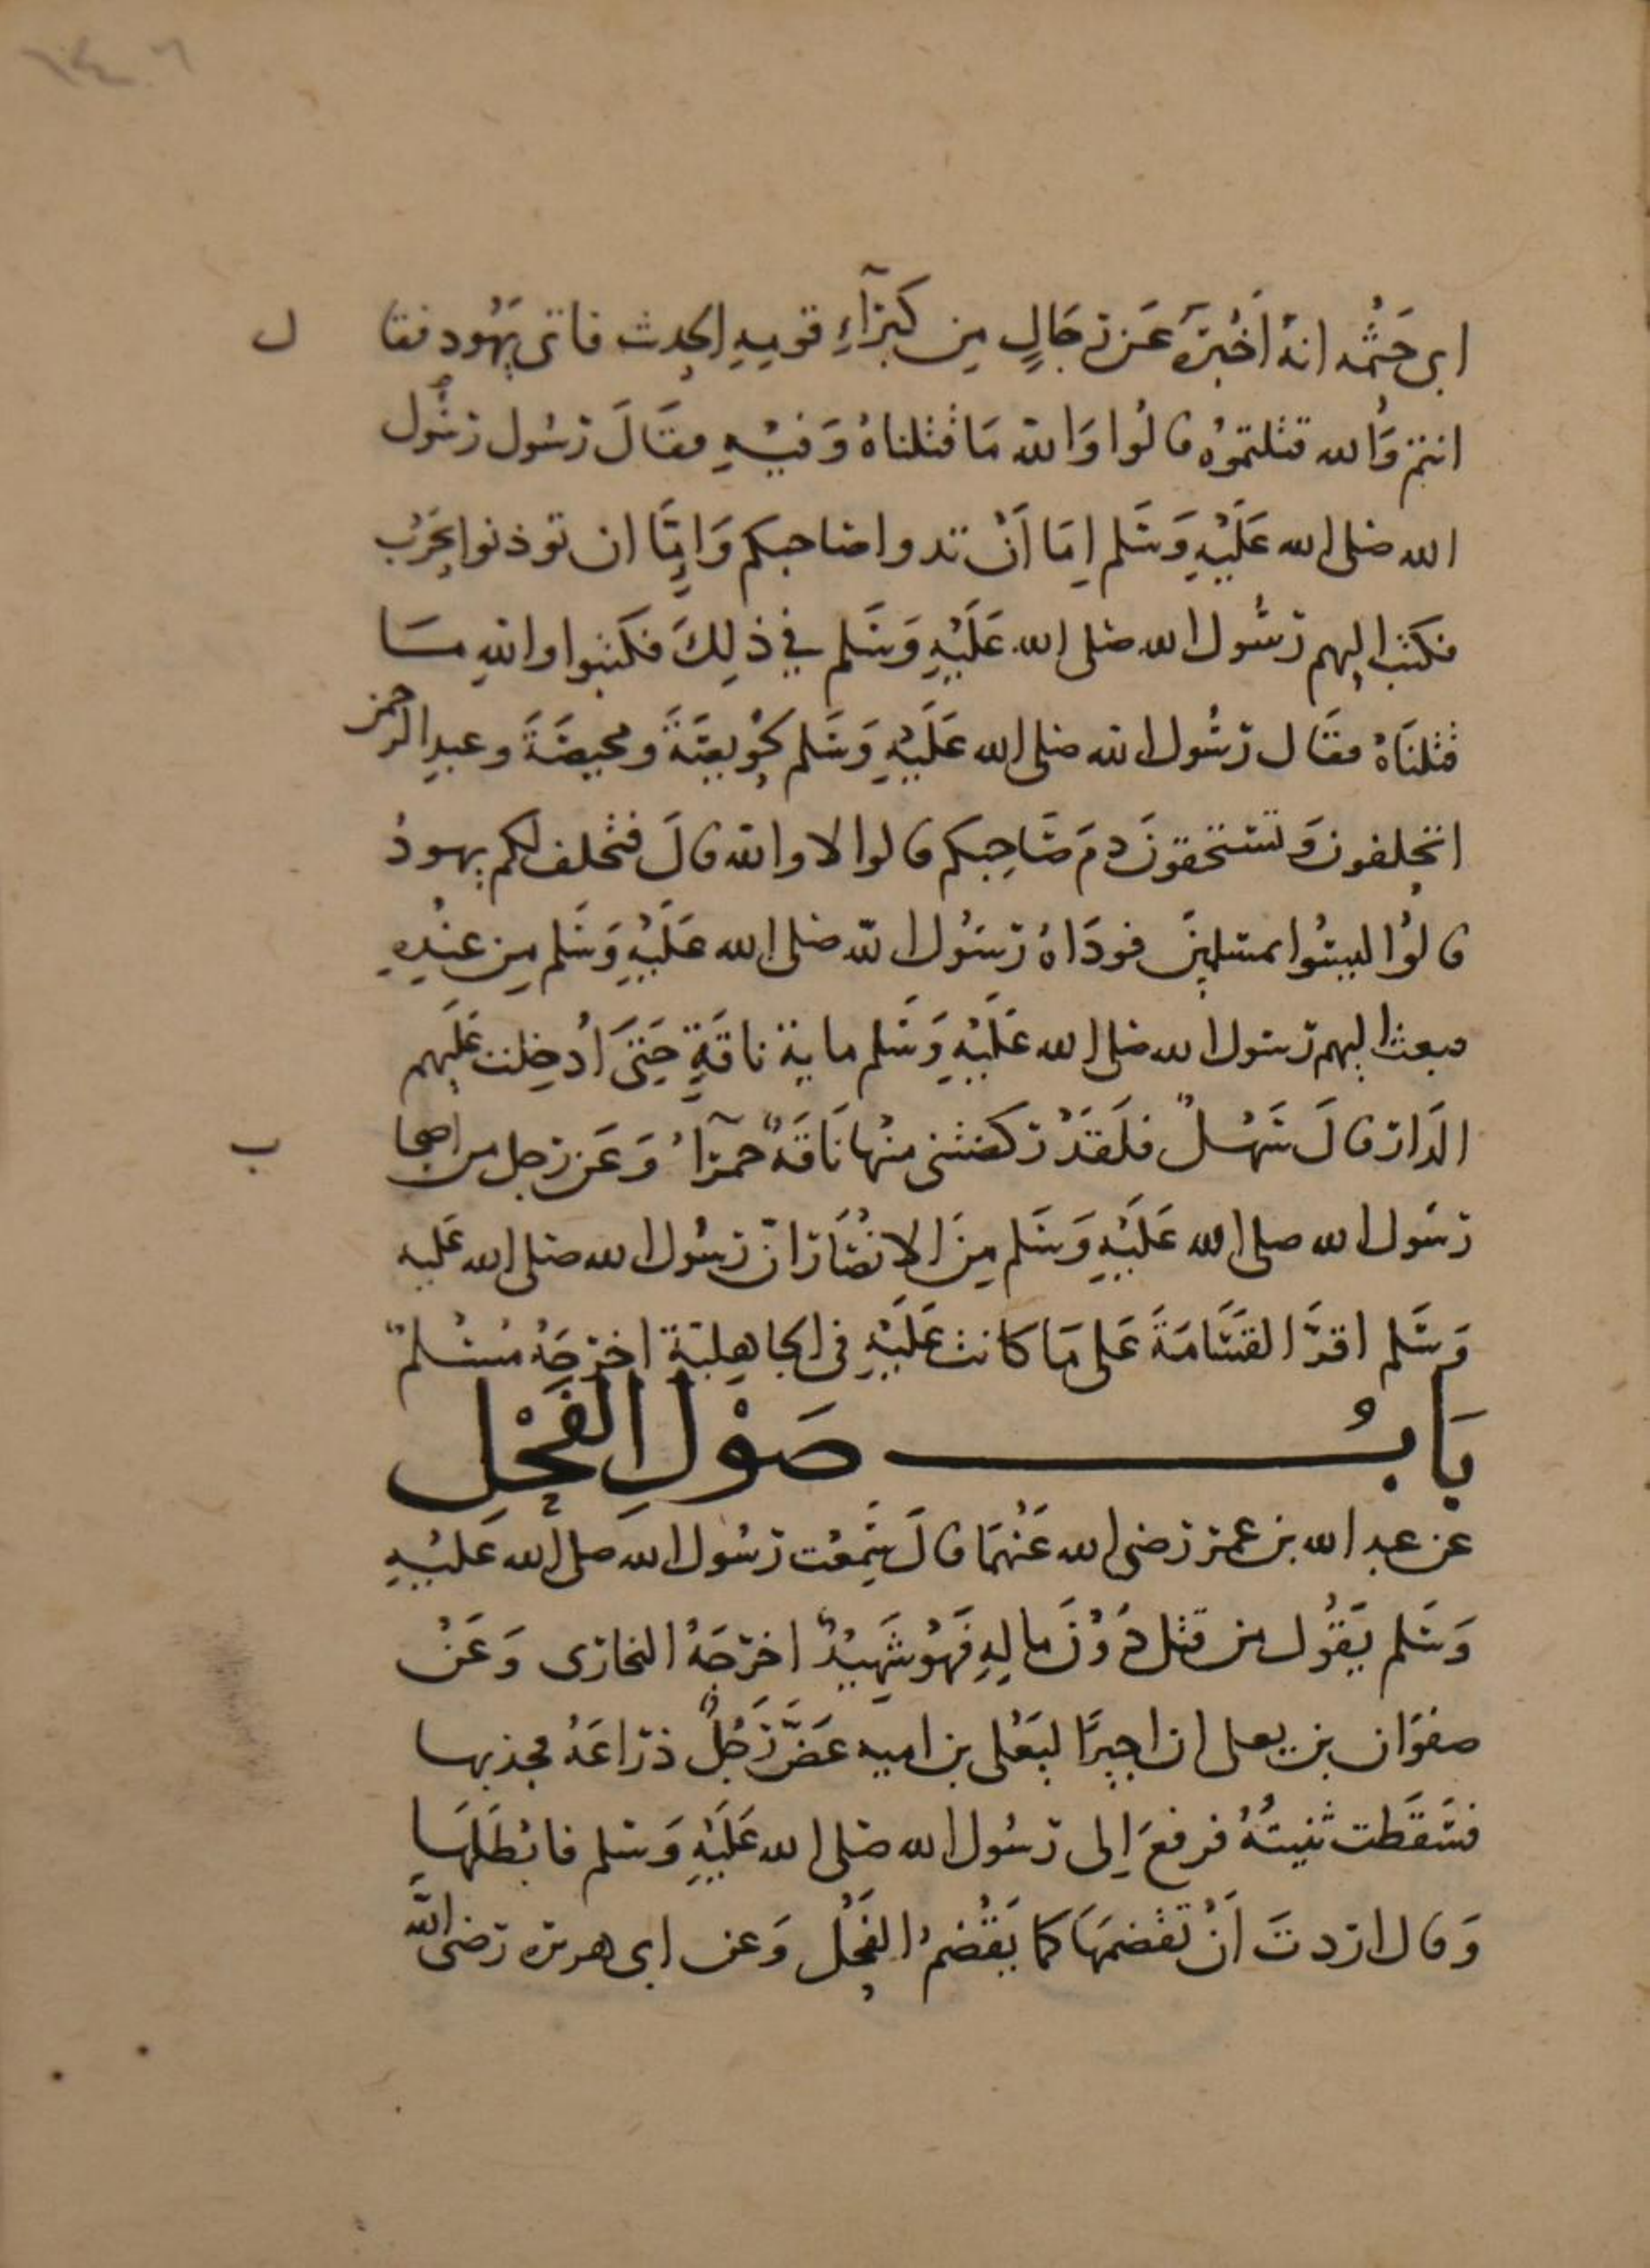 ابى حَثْمه انهُ اَخْبَرَهُ عَن رجَالٍ مِن كبَرَآءِ قومِهِ الحدِيث فاتى يَهُود فقال
انتم وَالله قتلتموُه قالُوا وَالله مَا قتلناهُ وَفيْهِ فقَالَ رَسُول رسُول
الله صَلى الله عَلَيْهِ وَسَلم اِمَا اَنْ تدوا صَاحبكم وَاِمَّا ان توذنوا بحَرْب
فكتب اليهم رَسُول الله صَلى الله عَلَيْهِ وَسَلم في ذلِكَ فكتبوا واللهِ مَا
قتلنَاهُ فقَال رَسُول الله صَلى الله عَلَيْهِ وَسَلم لحُوَيصَةَ ومحيصَةَ وعبدِالرحمن
اتحلفونَ وَتستحقونَ دمَ صَاحِبكم قالوا لا والله قالَ فتحلف لكم يهودُ
قالُوا ليسُوا بمسْلمِينَ فودَاهُ رَسُول الله صَلى الله عَلَيْهِ وَسَلم مِن عنْدِهِ
فبعث اليهم رَسُول الله صَلى الله عَلَيْهِ وَسَلم ماية ناقَةٍ حَتىَ اُدخِلت عَليهم
الدَار قالَ سَهْلٌ فلَقَدْ ركضتنى منْها نَاقَةٌ حمرَآءُ وَعَن رَجل من اصحاب
رَسُول الله صلى الله عَلَيْهِ وَسَلم مِنَ الانصَار انّ رسُول الله صَلى الله عَليه
وَسَلم اقرَّ القَسَامَةَ عَلى مَا كانت عَلَيْهِ فى الجاهِلية اخرَجَهُ مُسْلمٌ
بَابُ صَوْلِ الفَحْلِ
عن عبد الله بن عمر رَضى الله عَنْهمَا قالَ سَمِعْت رَسُول الله صلى الله عَليْهِ
وَسَلم يَقُول من قتل دُوْنَ مالِهِ فَهُوَ شَهِيْدٌ اخرَجَهُ البخارى وَعَنْ
صفوَان بن يعلى ان اجيرًا ليَعْلى بن اميه عَضَّ رَجُلٌ ذرَاعَهُ فجذبها
فسَقَطَت ثنيتُهُ فرفعَ اِلى رَسُول الله صَلى الله عَلَيْهِ وَسَلم فابْطَلَهَا
وَقال ارَدتَ اَنْ تقْضمَهَا كما يَقْضمُ الفَحْل وَعن ابى هريرَه رَضى الله